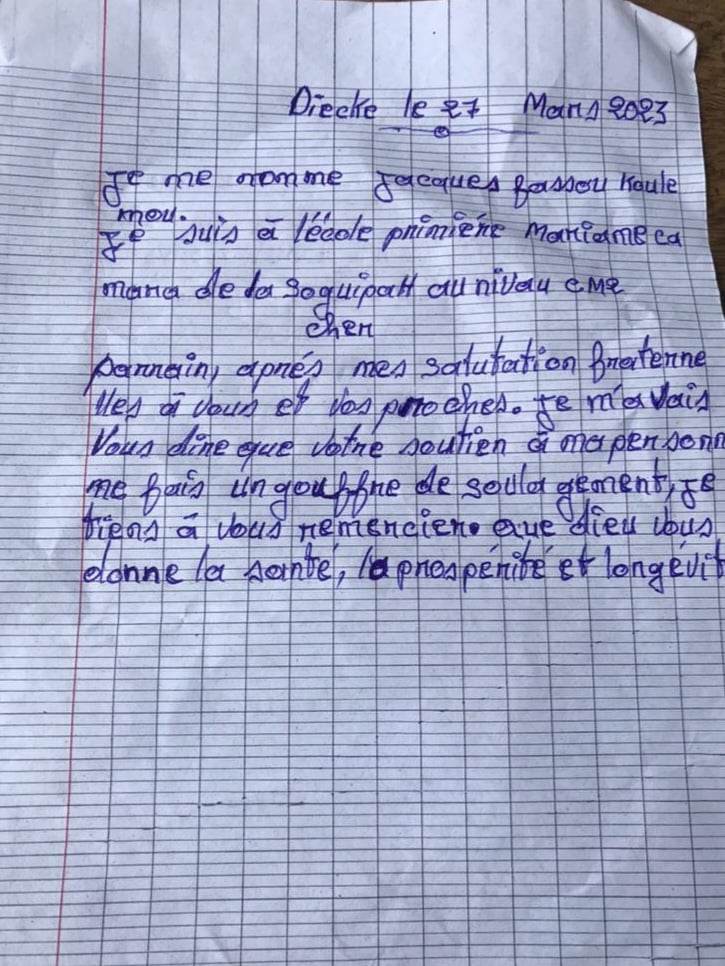 Diecke le 27 Mars 2023
Je me nomme Jacques fassou Koule
mou.
Je suis à l'école primière Mariame ca
mara de la Soguipah au nivau CM2
cher
parrain, aprés mes salutation fraterne
lles à vous et vos proches. Je m'avais
vous dire que votre soutien à ma personn
me fais un gouffre de soulagement, je
tiens à vous remercier. que dieu vous
donne la santé, la prospérité et longévit